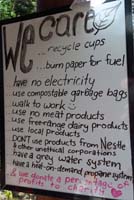 we care
...recycle cups
...burn paper for fuel
have no electricity
use compostable garbage bags
walk to work
use no meat products
use freerange dairy products
use local products
DON'T use products from Nestle
& other unethical corporations
have a grey water system
have a heat-on-demand propane system
& we donate a percentage of
profits to charity